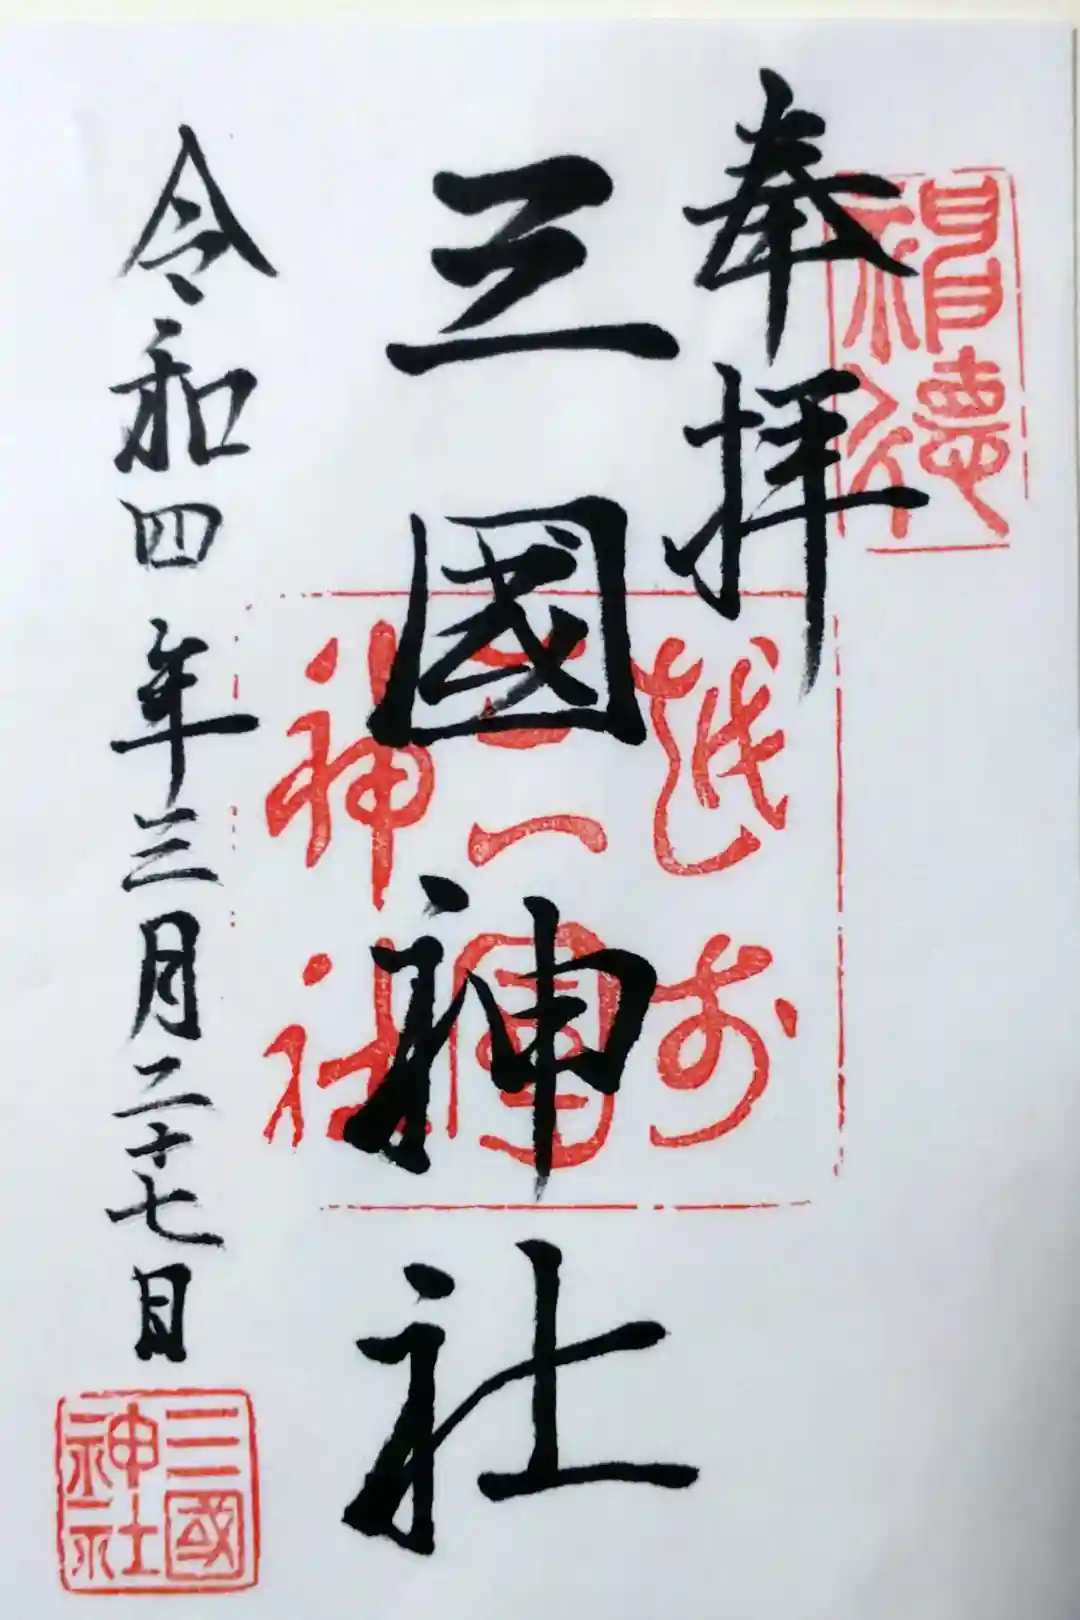 奉拝
三國神社
令和四年三月二十七日
越前
三國
神社
三國
神社